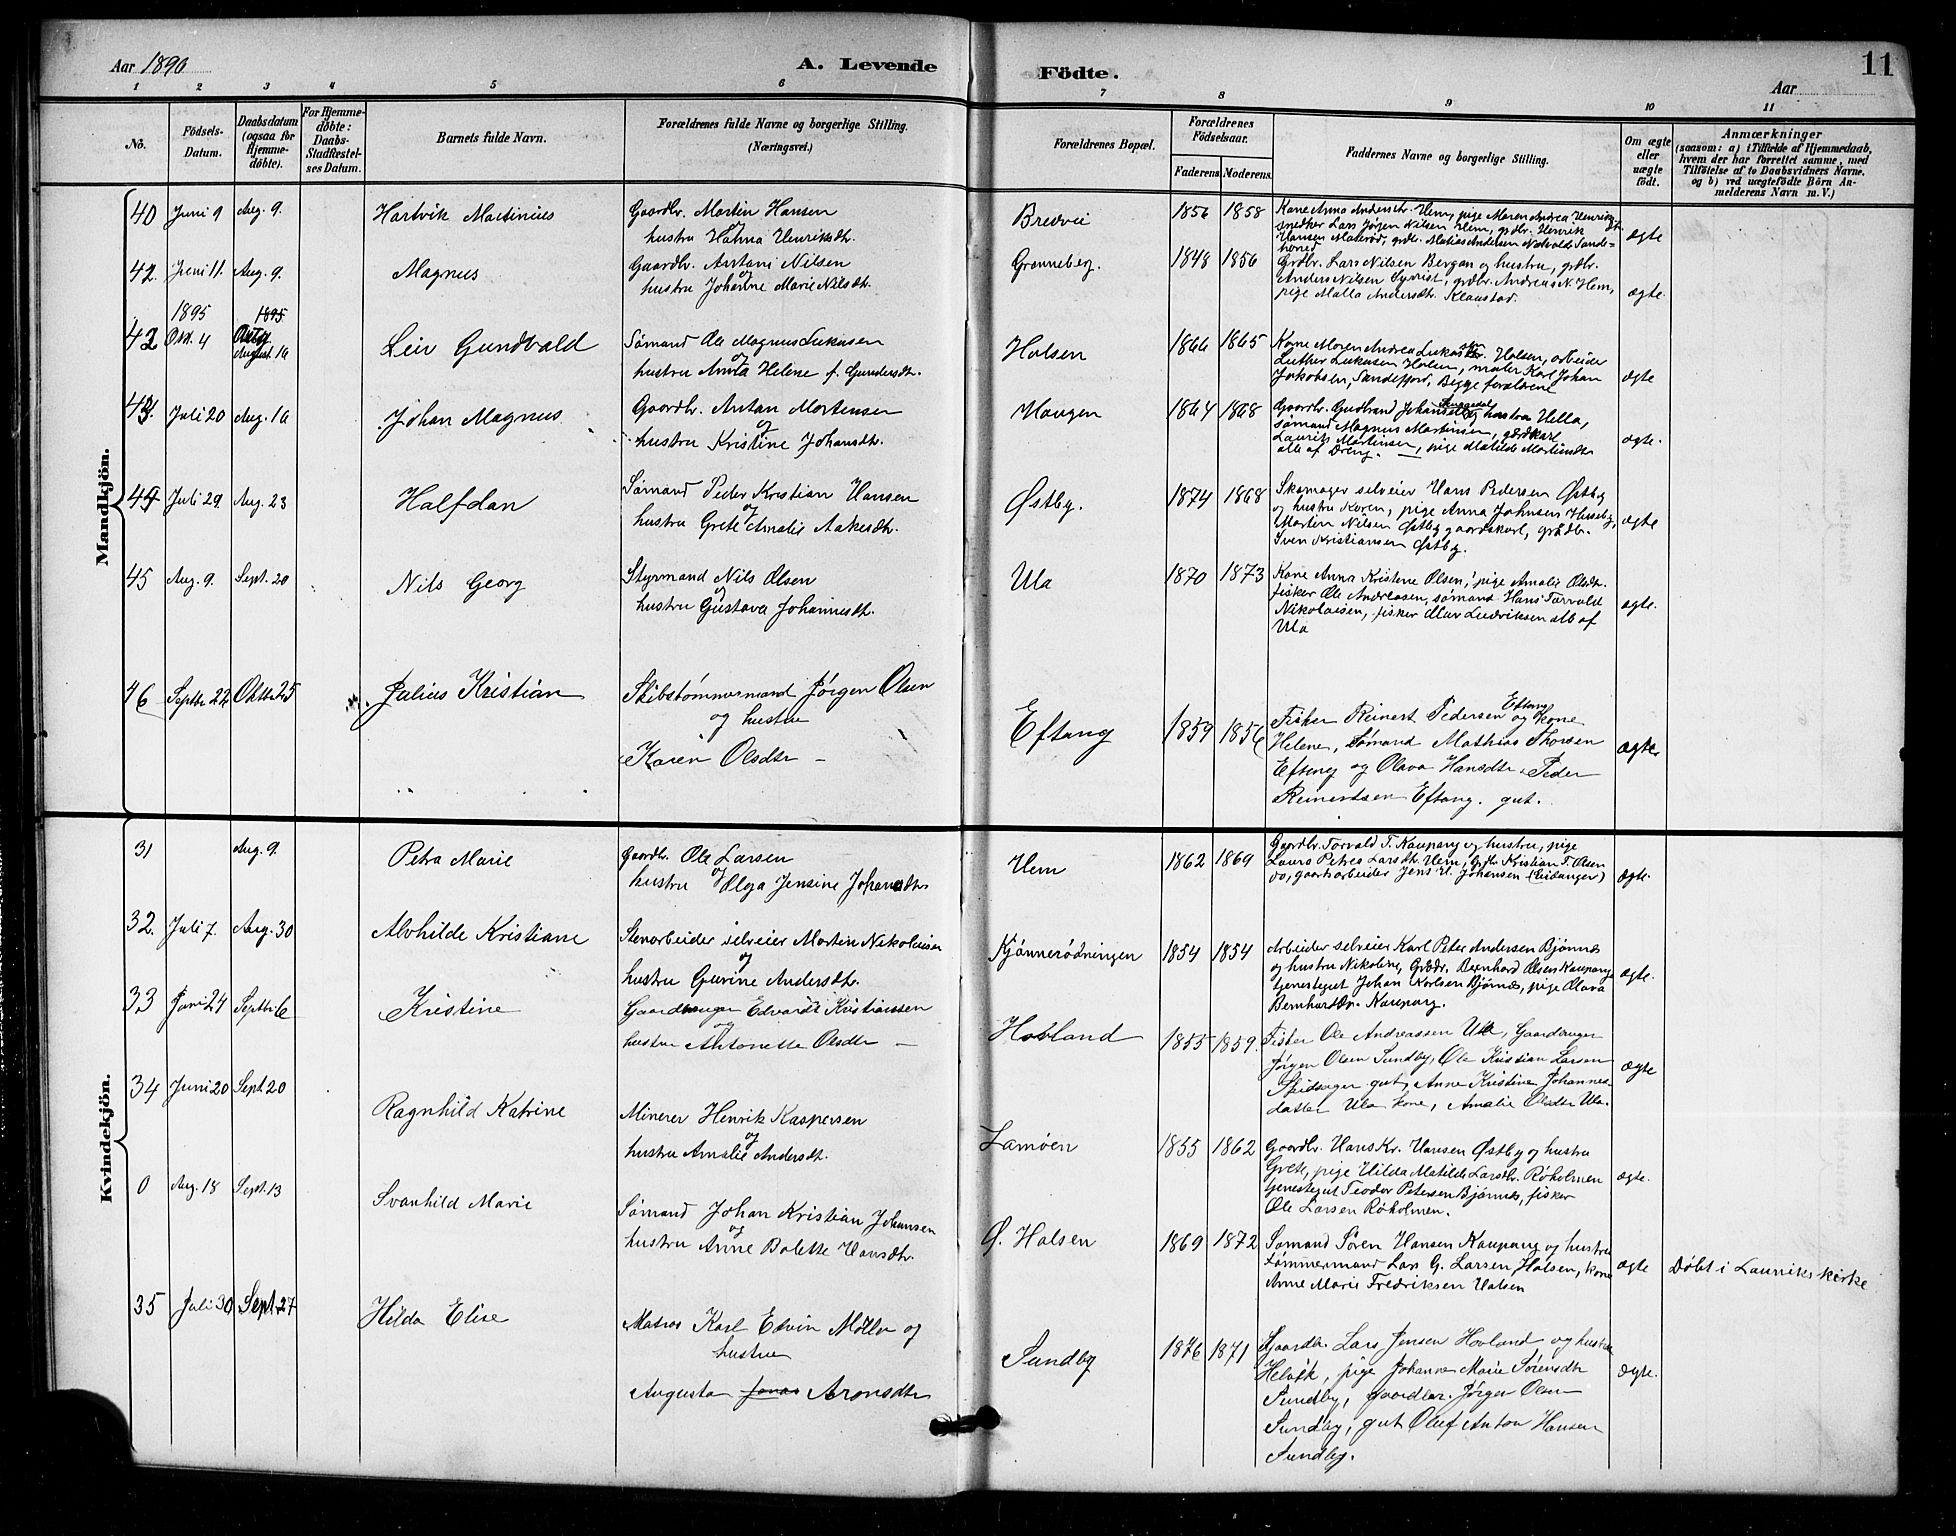 11
Aar 1896
A. Levende
Födte.
Aar
1 2 3 4 5 6 7 8 9 10 11
No.
Födsels-Datum.
Daabsdatum (ogsaa for Hjemmedøbte).
For Hjemmedøbte: Daabs-Stadfæstelses Datum.
Barnets fulde Navn.
Forældrenes fulde Navne og borgerlige Stilling.
(Næringsvei.)
Forældrenes Bopæl.
Forældrenes Födselsaar.
Faderens. Moderens.
Faddernes Navne og borgerlige Stilling.
Om ægte eller uægte født.
Anmærkninger
(saasom: a) i Tilfælde af Hjemmedaab,
hvem der har forrettet samme, med
Tilføielse af to Daabsvidners Navne.
og b) ved uægtefödte Börn An-
melderens Navn m. V.)
Mandkjön.
40 Juni 9 Aug. 9. Hartvik Martinius
Gaardbr. Martin Hansen
og
hustru Hanna Henriksdtr.
Bredvei 1856 1858
Kone Anna Andersdtr. Hem, pige Maren Andrea Henriksdtr.
snedker Lars Jørgen Nilsen Hem, grdbr. Henrik
Hansen Materød, grdbr. Matias Andersen Nalvald, Sande-
herred
ægte
42. Juni 11. Aug. 9. Magnus
Gaardbr. Antani Nilsen
og
hustru Johanne Marie Nilsdtr.
Grønneberg. 1848 1856
Grdbr. Lars Nilsen Bergan og hustru, grdbr.
Anders Nilsen Syvrist, grdbr. Andreas N. Hem,
pige Malla Andersdtr. Klaastad.
ægte.
1895 1895
42 Okt. 4 August 16 Leiv Gundvald
Sømand Ole Magnus Lukasen
og
hustru Anna Helene f. Gundersdtr.
Halsen 1866 1865
Kone Maren Andrea Lukasdtr. Halsen, arbeider
Luther Lukasen Halsen, maler Karl Johan
Jakobsen, Sandefjord, Begge forældrene
ægte
43. Juli 20 Aug. 16 Johan Magnus
Gaardbr. Anton Martinsen
og
hustru Kristine Johansdtr.
Haugen 1864 1868
Gaardbr. Gudbrand Johansen Skuggedal og hustru Hella,
sømand Magnus Martinsen, gårdkarl
Laurits Martinsen —, pige Matilde Martinsdtr
alle af Dreng.
ægte.
44 Juli 29. Aug. 23 Halfdan
Sømand Peder Kristian Hansen
og
hustru Grete Amalie Aakesdtr.
Østby. 1874 1868
Skomager selveier Hans Pedersen Østby
og hustru Karen, pige Anna Johnsen Husseby,
Martin Nilsen Østby gaardskarl, grdbr.
Sven Kristiansen Østby.
ægte
45 Aug. 9. Sept. 20 Nils Georg
Styrmand Nils Olsen
og
hustru Gustava Johannesdtr.
Ula 1870 1873
Kone Anna Kristine Olsen, pige Amalie Olsdtr.
fisker Ole Andreasen, sømand Hans Torvald
Nikolaisen, fisker Olav Ludviksen alle af
Ula
ægte.
46 Septbr 22 Oktbr 25 Julius Kristian
Skibstømmermand Jørgen Olsen
og hustru
Karen Olsdtr —
Eftang 1859 1856
Fisker Reinert Pedersen Eftang og kone
Helene, Sømand Mathias Thorsen
Eftang og Olava Hansdtr. Peder
Reinertsen Eftang. gut.
ægte
Kvindekjön.
31 Aug. 9. Petra Marie
Gaardbr. Ole Larsen
og
hustru Helga Jensine Johansdtr
Hem 1862 1869
Gaardbr. Torvald T. Kaupang og hustru, pige
Laura Petrea Larsdtr. Hem, Grdbr Kristian T. Olsen
do, gaardsarbeider Jens H. Johansen (Eidanger)
ægte.
32. Juli 7. Aug. 30 Alvhilde Kristiane
Stenarbeider selveier Martin Nikolaisen
og
hustru Gurine Andersdtr.
Kjønnerødningen 1854 1854
Arbeider selveier Karl Peter Andersen Bjønnes
og hustru Nikoline, Grdbr. Bernhard Olsen Kaupang,
tjenestegut Johan Karlsen Bjønnes, pige Olava
Bernhardsdtr. Kaupang.
ægte.
33 Juni 24 Septbr 6 Kristine
Gaardbruger Edvardt Kristianssen
og
hustru Antonette Olsdtr —
Hovland 1855 1859.
Fisker Ole Andreassen Ula, Gaardbruger
Jørgen Olsen Sundby, Ole Kristian Larsen
Skidsager gut, Anne Kristine Johannes-
datter Ula kone, Amalie Olsdtr Ula.
ægte
34 Juni 20 Sept 20 Ragnhild Katrine
Minerer Henrik Kaspersen
og
hustru Amalie Andersdtr.
Lamøen 1855 1862
Gaardbr. Hans Kr. Hansen Østby og hustru
Grete, pige Hilda Matilde Larsdtr. Røholmen
tjenestegut Teodor Petersen Bjønnes, fisker
Ole Larsen Røholmen.
ægte.
0 Aug. 18 Sept. 13 Svanhild Marie
Sømand Johan Kristian Johansen
og
hustru Anne Bolette Hansdtr.
Ø. Halsen 1869 1872
Sømand Søren Hansen Kaupang og hustru
tømmermand Lars G. Larsen Halsen, kone
Anne Marie Fredriksen Halsen
ægte
Døbt i Lauviks kirke
35 Juli 30 Sept. 27 Hilda Elise
Matros Karl Edvin Møller og
hustru
Augusta Jonas Aronsdtr
Sundby 1876 1871
Gaardbr. Lars Jensen Hovland og hustru
Helvik, pige Johanne Marie Sørensdtr
Sundby, gaardbr. Jørgen Olsen
Sundby, gut Oluf Anton Hansen
Sundby.
ægte.